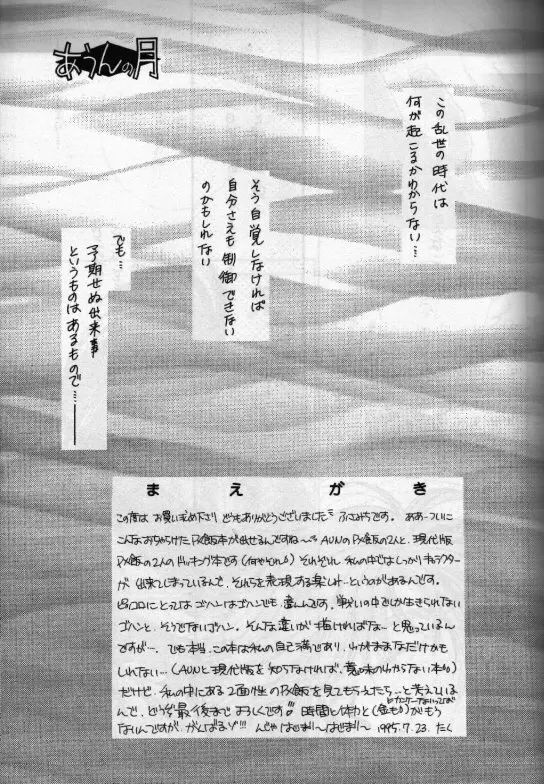 あうんの月
この乱世の時代は
何が起こるかわからない…
そう自覚しなければ
自分さえも制御できない
のかもしれない
でも…
予期せぬ出来事
というものはあるもので…――
まえがき
この度は お買い求め下さり どうもありがとうございました ふさみちです。 ああーついに
こんなおちゃらけた 飯本が出せるんですね〜 AUNの 飯の2人と、現代版
飯の2人のドッキング本です(何やそれ) それぞれ 私の中ではしっかりキャラクター
が 出来てしまっているんで、それらを表現する楽しみ…というのがあるんです。
ピッコロにとっては ゴハンはゴハンでも、違うんです。戦いの中でしか生きられない
ゴハンと、そうでないゴハン。そんな違いが 描ければな…と思っているん
ですが…。 でも本当、この本は私の自己満であり、わがままなだけかも
しれない…(AUNと現代版を知らなければ、意味のわからない本)
だけど、私の中にある2面性の 飯を見てもらえたら…と考えている
んで、どうぞ最後までよろしくです!! 時間と体力と(金も)がもう
ないんですが、がんばるゾ!!! んじゃはじまり〜はじまり〜 1995.7.23. たく